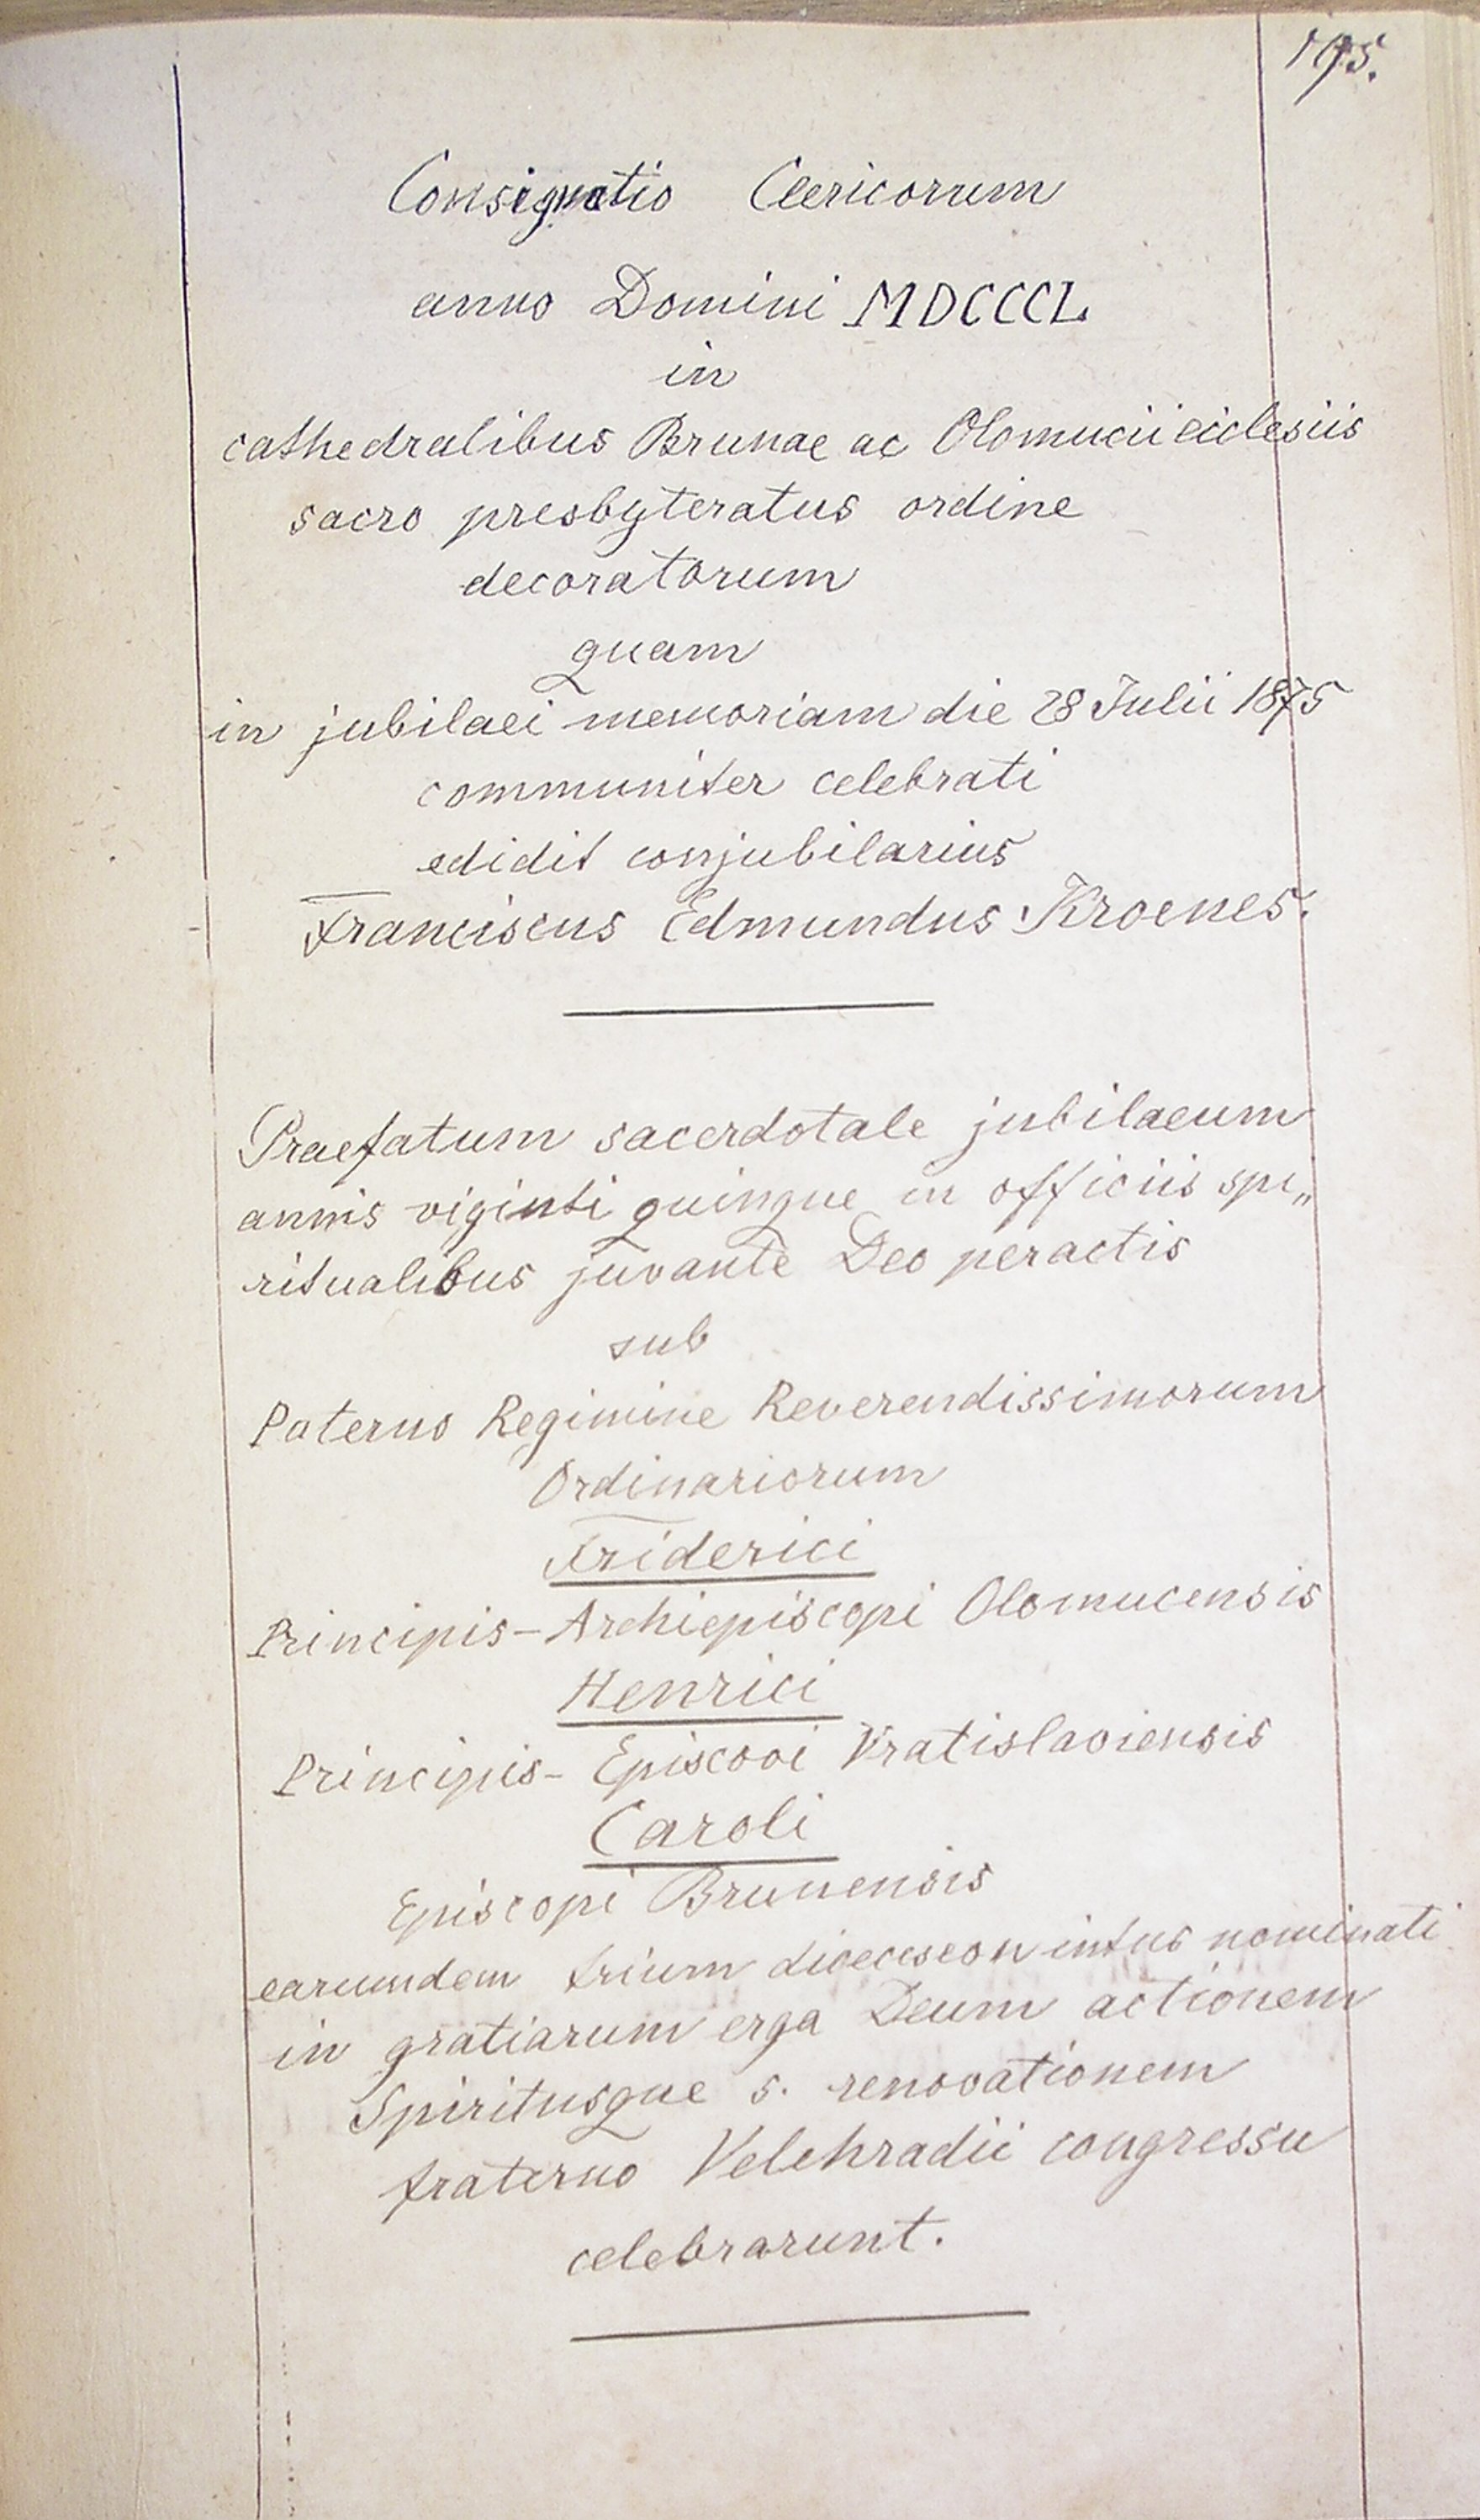 195.
Consignatio Clericorum
anno Domini MDCCCL
in
cathedralibus Brunae ac Olomucii ecclesiis
sacro presbyteratus ordine
decoratorum
quam
in jubilaei memoriam die 28 Julii 1875
communiter celebrati
edidit conjubilarius
Franciscus Edmundus Kroenes.
Praefatum sacerdotale jubilaeum
annis viginti quinque in officiis spi„
ritualibus juvante Deo peractis
sub
Paterno Regimine Reverendissimorum
Ordinariorum
Friderici
Principis-Archiepiscopi Olomucensis
Henrici
Principis- Episcopi Vratislaviensis
Caroli
Episcopi Brunensis
earumdem trium dioeceseon intus nominati
in gratiarum erga Deum actionem
Spiritusque s. renovationem
fraterno Velehradii congressu
celebrarunt.